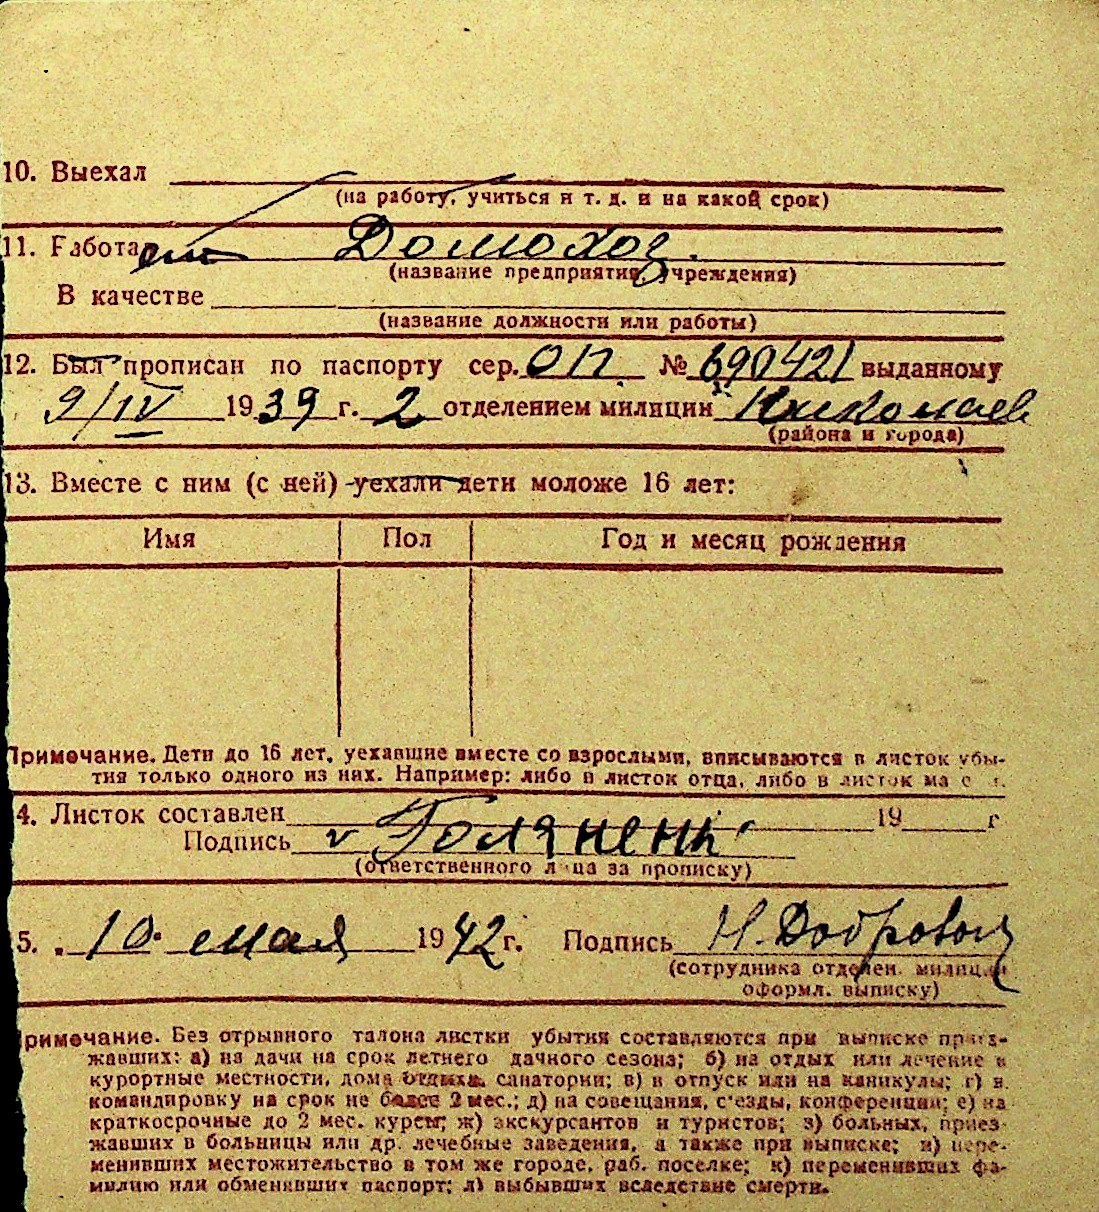 10. Выехал
(на работу, учиться и т. д. и на какой срок)
11. Работа Домохоз.
(название предприятия, учреждения)
В качестве
(название должности или работы)
12. Был прописан по паспорту сер. ОП № 690421 выданному
9/IV 1939 г. 2 отделением милиции Николаев
(района и города)
13. Вместе с ним (с ней) уехали дети моложе 16 лет:
Имя Пол Год и месяц рождения
Примечание. Дети до 16 лет, уехавшие вместе со взрослыми, вписываются в листок убы-
тия только одного из них. Например: либо в листок отца, либо в листок
4. Листок составлен 19 г
Подпись
(ответственного лица за прописку)
5. „ 10 мая 1942 г. Подпись Н. Доброволь
(сотрудника отделен. милиции
оформл. выписку)
римечание. Без отрывного талона листки убытия составляются при выписке приез-
жавших: а) на дачи на срок летнего дачного сезона; б) на отдых или лечение в
курортные местности, дома отдыха, санатории; в) в отпуск или на каникулы; г) в
командировку на срок не более 2 мес.; д) на совещания, с'езды, конференции; е) на
краткосрочные до 2 мес. курсы; ж) экскурсантов и туристов; з) больных, приез-
жавших в больницы или др. лечебные заведения, а также при выписке; и) пере-
менивших местожительство в том же городе, раб. поселке; к) переменивших фа-
милию или обменявших паспорт; л) выбывших вследствие смерти.